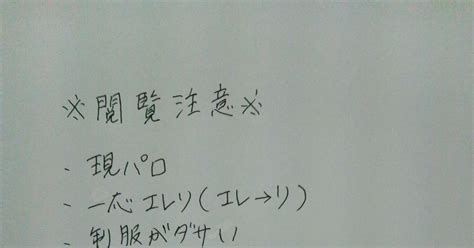 ※閲覧注意※
- 現パロ
- 一応エレリ(エレ→リ)
- 制服がダサい